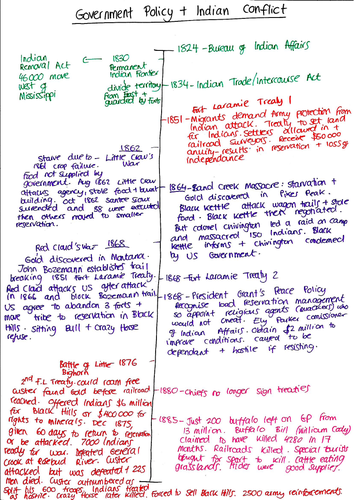 Government Policy + Indian Conflict
1824 - Bureau of Indian Affairs
Indian
Removal Act
46000 move
West of
Mississippi
1830
Permanent
Indian Frontier
divide territory
from East +
guarded by forts
1834 - Indian Trade/Intercourse Act
Fort Laramie Treaty 1
1851 - Migrants demand Army protection from
Indian attack. Treaty to set land
for Indians. Settlers allowed in +
railroad surveyors. Receive $50000
annuity - results in reservation + loss of
Independence
1862
Starve due - Little Crow's
to War
1861 crop failure.
Food not supplied by
government. Aug 1862 Little Crow
attacks agency, stole food + burnt
building. Oct 1862 Santee Sioux
surrended and 38 were executed
then others moved to smaller
reservation.
1864 - Sand Creek Massacre: starvation +
Gold discovered in Pikes Peak.
Black Kettle attack wagon trails + stole
food. Black Kettle then negotiated.
But Colonel Chivington led a raid on camp
and massacred 150 Indians. Black
Kettle informs + Chivington condemned
by US Government.
Red Cloud's War 1868
Gold discovered in Montana.
John Bozemann establishes trail
breaking 1851 Fort Laramie Treaty.
Red Cloud attacks US after attack
in 1866 and block Bozemann trail.
US agree to abandon 3 forts +
move tribe to reservation in Black
Hills. Sitting Bull + Crazy Horse
refuse.
1868 - Fort Laramie Treaty 2
1868 - President Grant's Peace Policy
Recognise bad reservation management
so appoint religious agents (Quackers) who
would not cheat. Ely Parker comissioner
of Indian Affairs. Obtain $2 million to
improve conditions. Caused to be
dependant + hostile if resisting.
Battle of Little 1876
Bighorn
2nd F.L Treaty could roam free
Custer found gold before railroad
reached. Offered Indians $6 million
for Black Hills or $400000 for
rights to minerals. Dec 1875,
given 60 days to return to reservation
or be attacked. 7000 Indians
ready for war. Defeated General
Crook at Rosebud River. Custer
attacked but was defeated + 225
men died. Custer outnumbered as
split his 600 troops. Indians treated
as hostile. Crazy Horse later killed, forced to sell Black Hills. 2500 army reinforcements
1880 - Chiefs no longer sign treaties
1885 - Just 200 buffalo left on GP from
13 million. Buffalo Bill (William Cody)
claimed to have killed 4280 in 17
months. Railroads killed. Special trains
bought for sport to kill. Cattle eating
grasslands. Hides were good supplies.